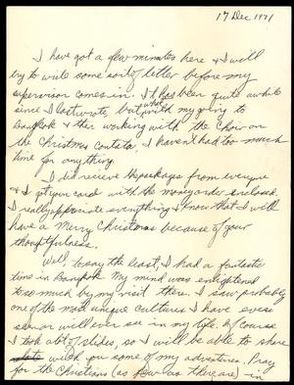 17 Dec 1971
I have got a few minutes here & I will
try to write some sort of letter before my
supervisor comes in. It has been quite awhile
since I last wrote, but what with my going to
Bangkok & then working with the Choir on
the Christmas Cantata, I haven't had too much
time for anything.
I did receive packages from everyone
& I got your card with the money order enclosed.
I really appreciate everything & know that I will
have a Merry Christmas because of your
thoughtfulness.
Well, to say the least, I had a fantastic
time in Bangkok. My mind was enlightened
too so much by my visit there. I saw probably
one of the most unique cultures I have ever
seen or will ever see in my life. Of course
I took a lot of slides, so I will be able to share
with you some of my adventures. Pray
for the Christians (as few as there are) in